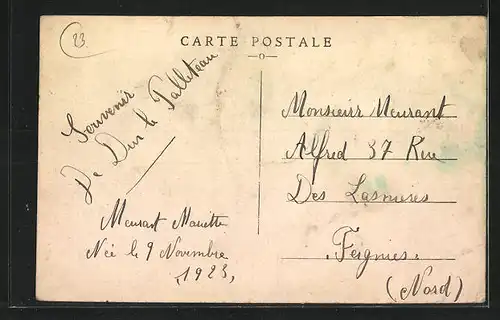 23.
CARTE POSTALE
Souvenir
De Dun le Palleteau
Meurant Mauette
Née le 9 Novembre
1923,
Monsieur Meurant
Alfred 37 Rue
Des
Feignies.
(Nord)